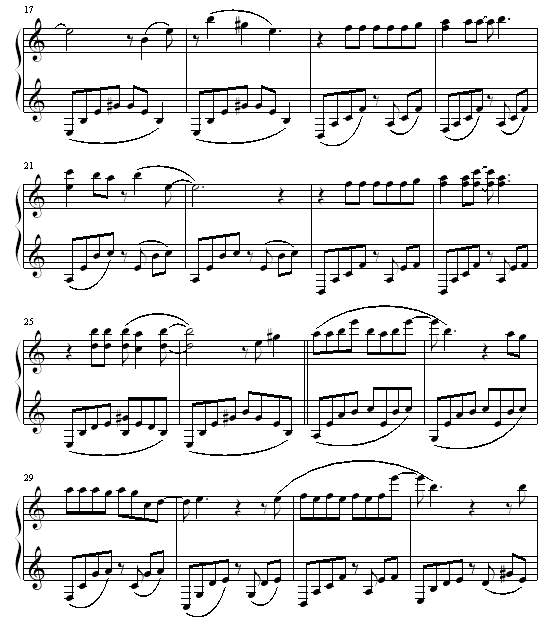 17
21
25
29